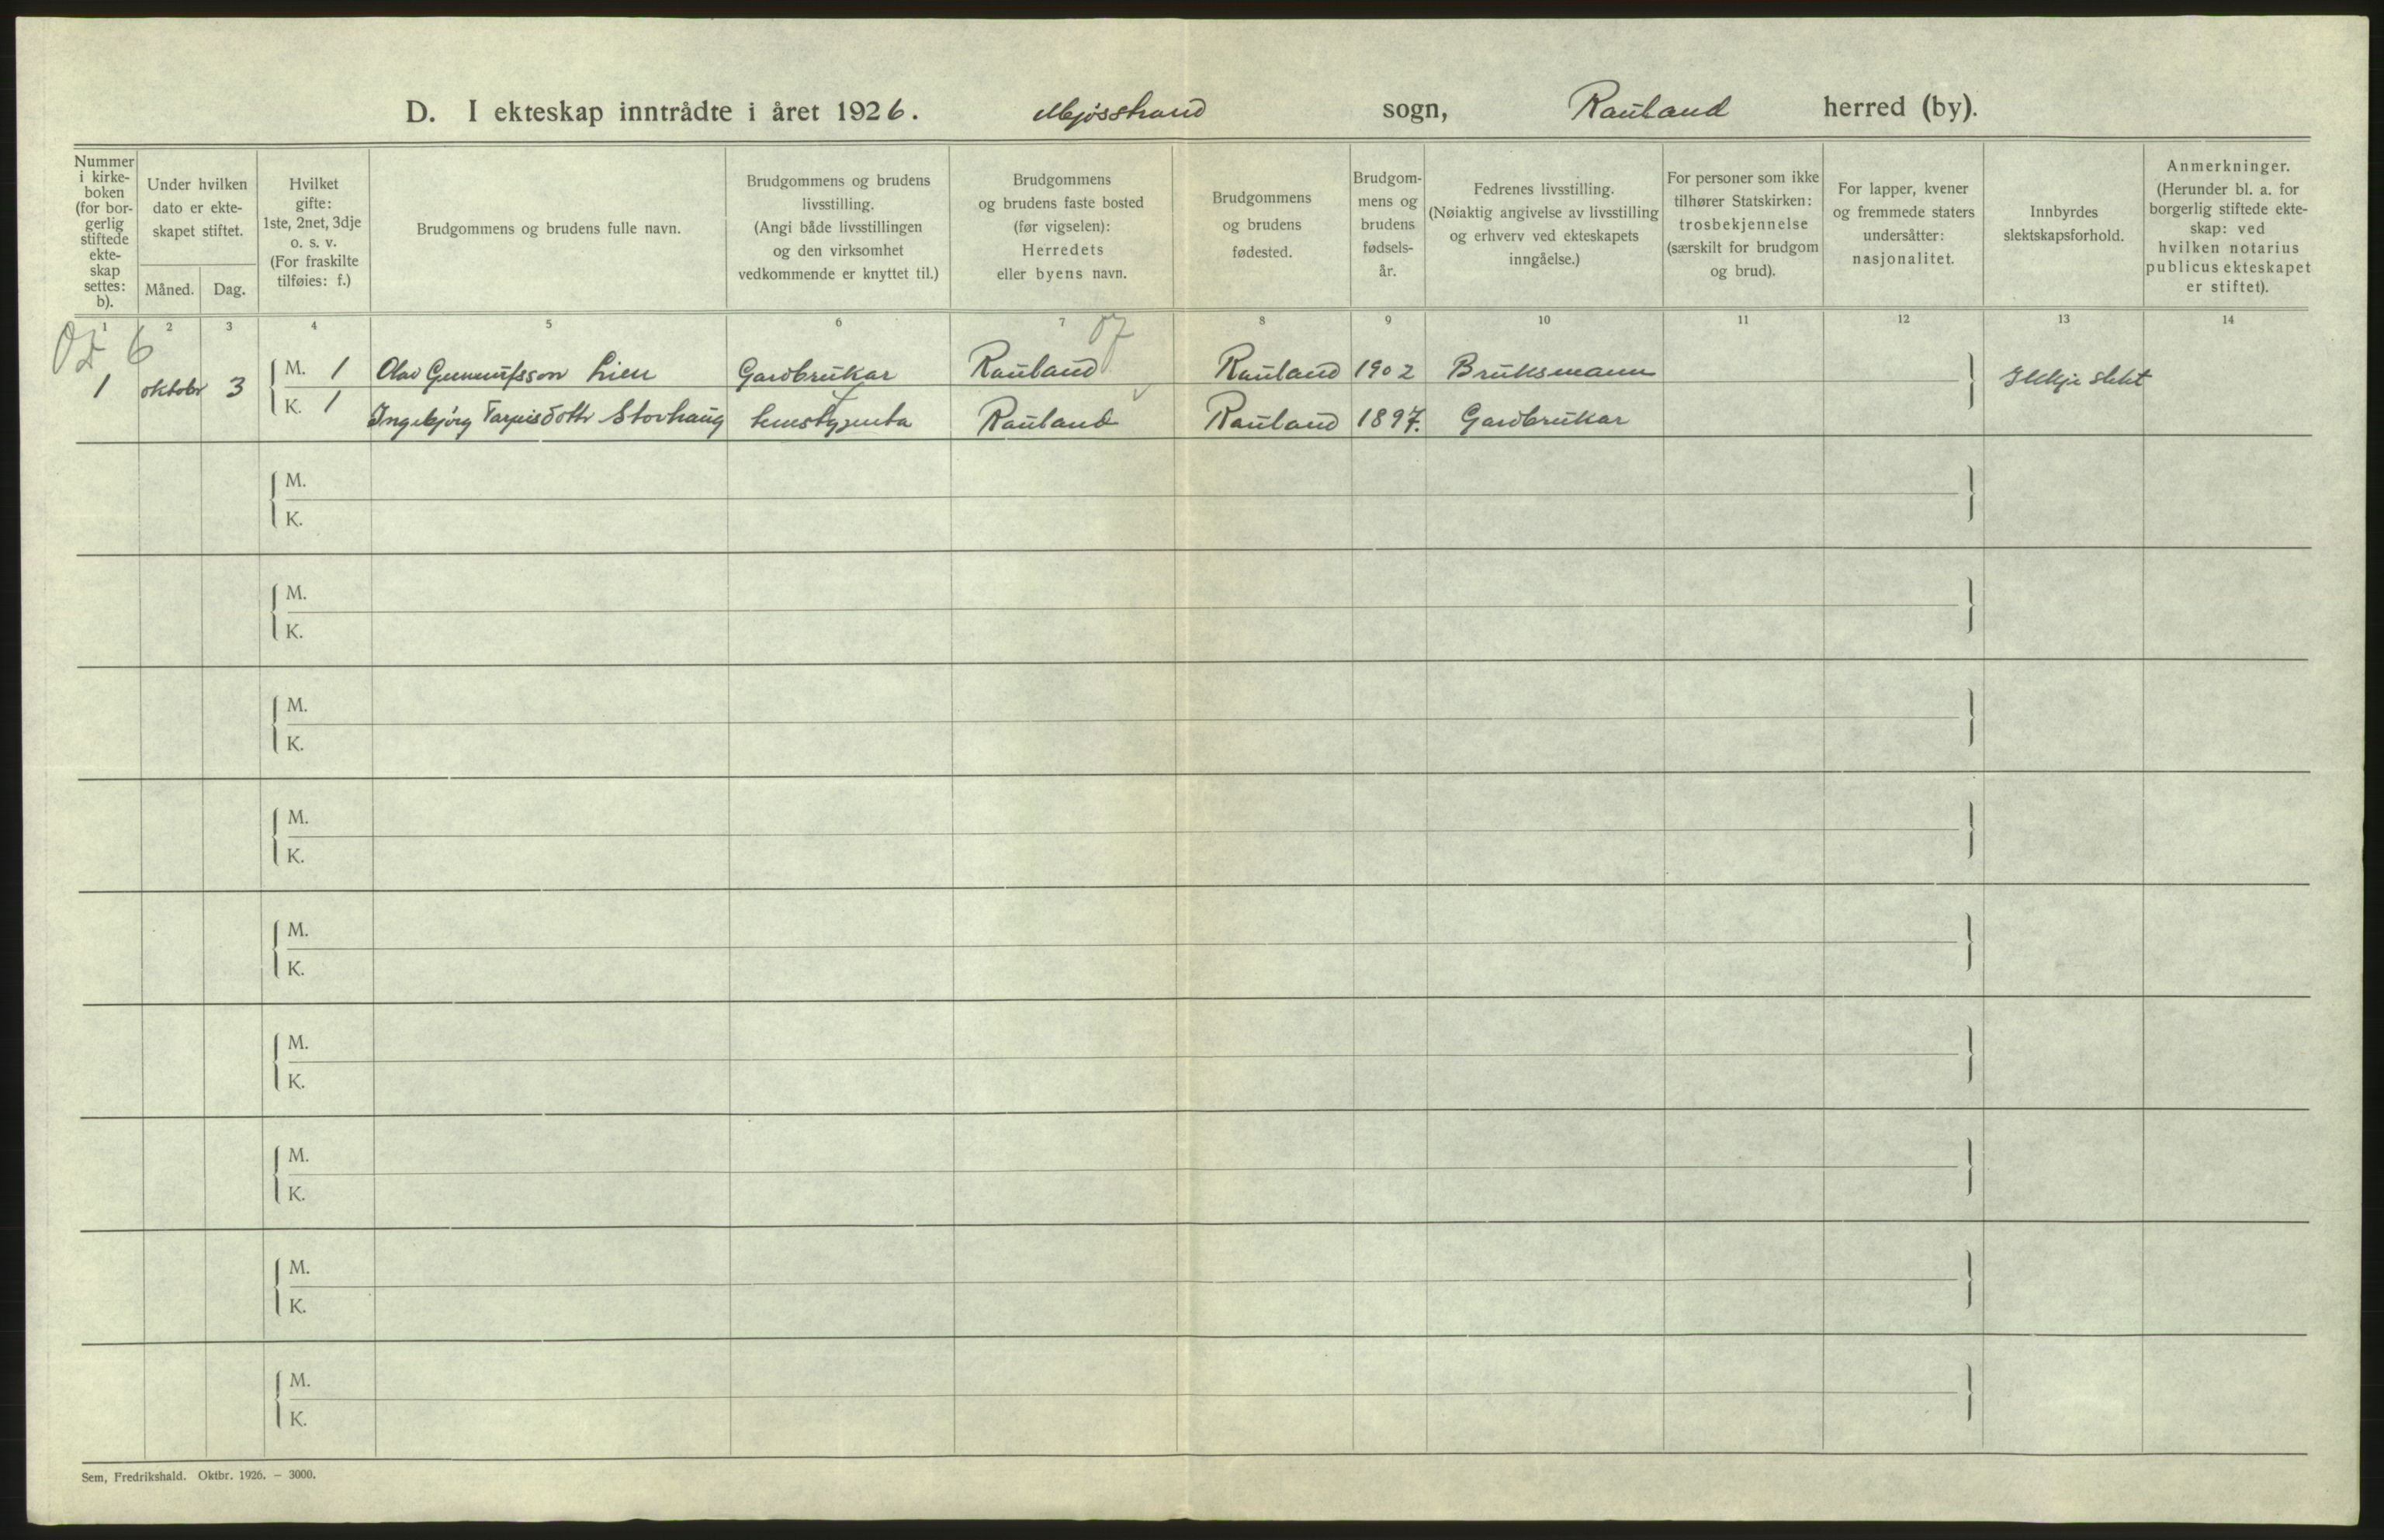 D. I ekteskap inntrådte i året 1926. Mjösstrand sogn, Rauland herred (by).
Nummer
i kirke-
boken
(for bor-
gerlig
stiftede
ekte-
skap
settes:
b).
Under hvilken
dato er ekte-
skapet stiftet.
Måned. Dag.
Hvilket
gifte:
1ste, 2net, 3dje
o. s. v.
(For fraskilte
tilføies: f.)
Brudgommens og brudens fulle navn.
Brudgommens og brudens
livsstilling.
(Angi både livsstillingen
og den virksomhet
vedkommende er knyttet til.)
Brudgommens
og brudens faste bosted
(før vigselen):
Herredets
eller byens navn.
Brudgommens
og brudens
fødested.
Brudgom-
mens og
brudens
fødsels-
år.
Fedrenes livsstilling.
(Nøiaktig angivelse av livsstilling
og erhverv ved ekteskapets
inngåelse.)
For personer som ikke
tilhører Statskirken:
trosbekjennelse
(særskilt for brudgom
og brud).
For lapper, kvener
og fremmede staters
undersåtter:
nasjonalitet.
Innbyrdes
slektskapsforhold.
Anmerkninger.
(Herunder bl. a. for
borgerlig stiftede ekte-
skap: ved
hvilken notarius
publicus ekteskapet
er stiftet).
1 2 3 4 5 6 7 8 9 10 11 12 13 14
6 07
1 oktobr 3
M. 1 Olav Gunnulfsson Lien Gardbrukar Rauland Rauland 1902 Bruksmann Ikkje slekt
K. 1 Ingebjörg Tarjeisdottr Storhaug tenestgjenta Rauland Rauland 1897. Gardbrukar
M.
K.
M.
K.
M.
K.
M.
K.
M.
K.
M.
K.
M.
K.
M.
K.
M.
K.
Sem, Fredrikshald. Oktbr. 1926. – 3000.